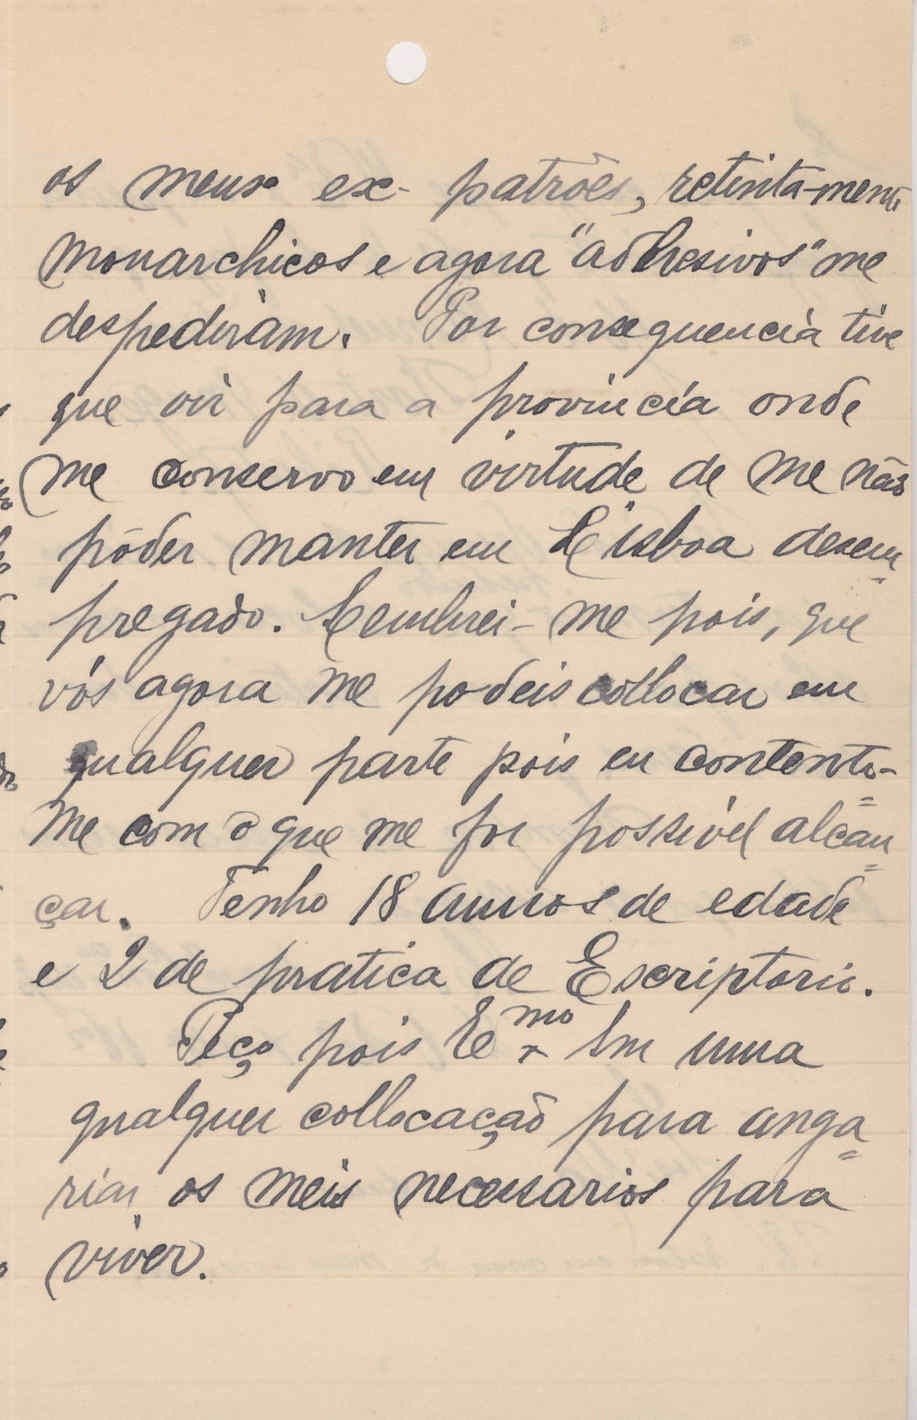 os meus ex-patrões, retintamente
monarchicos e agora "adhesivos" me
despediram. Por consequencia tive
que vir para a provincia onde
me conservo em virtude de me não
pôder manter em Lisboa desem
pregado. Lembrei-me pois, que
vós agora me podeis collocar em
qualquer parte pois eu contento-
me com o que me fôr possivel alcan
çar. Tenho 18 annos de edade
e 2 de pratica de Escriptorio.
Peço pois Exmo Snr uma
qualquer collocação para anga
riar os meis necessarios para
viver.